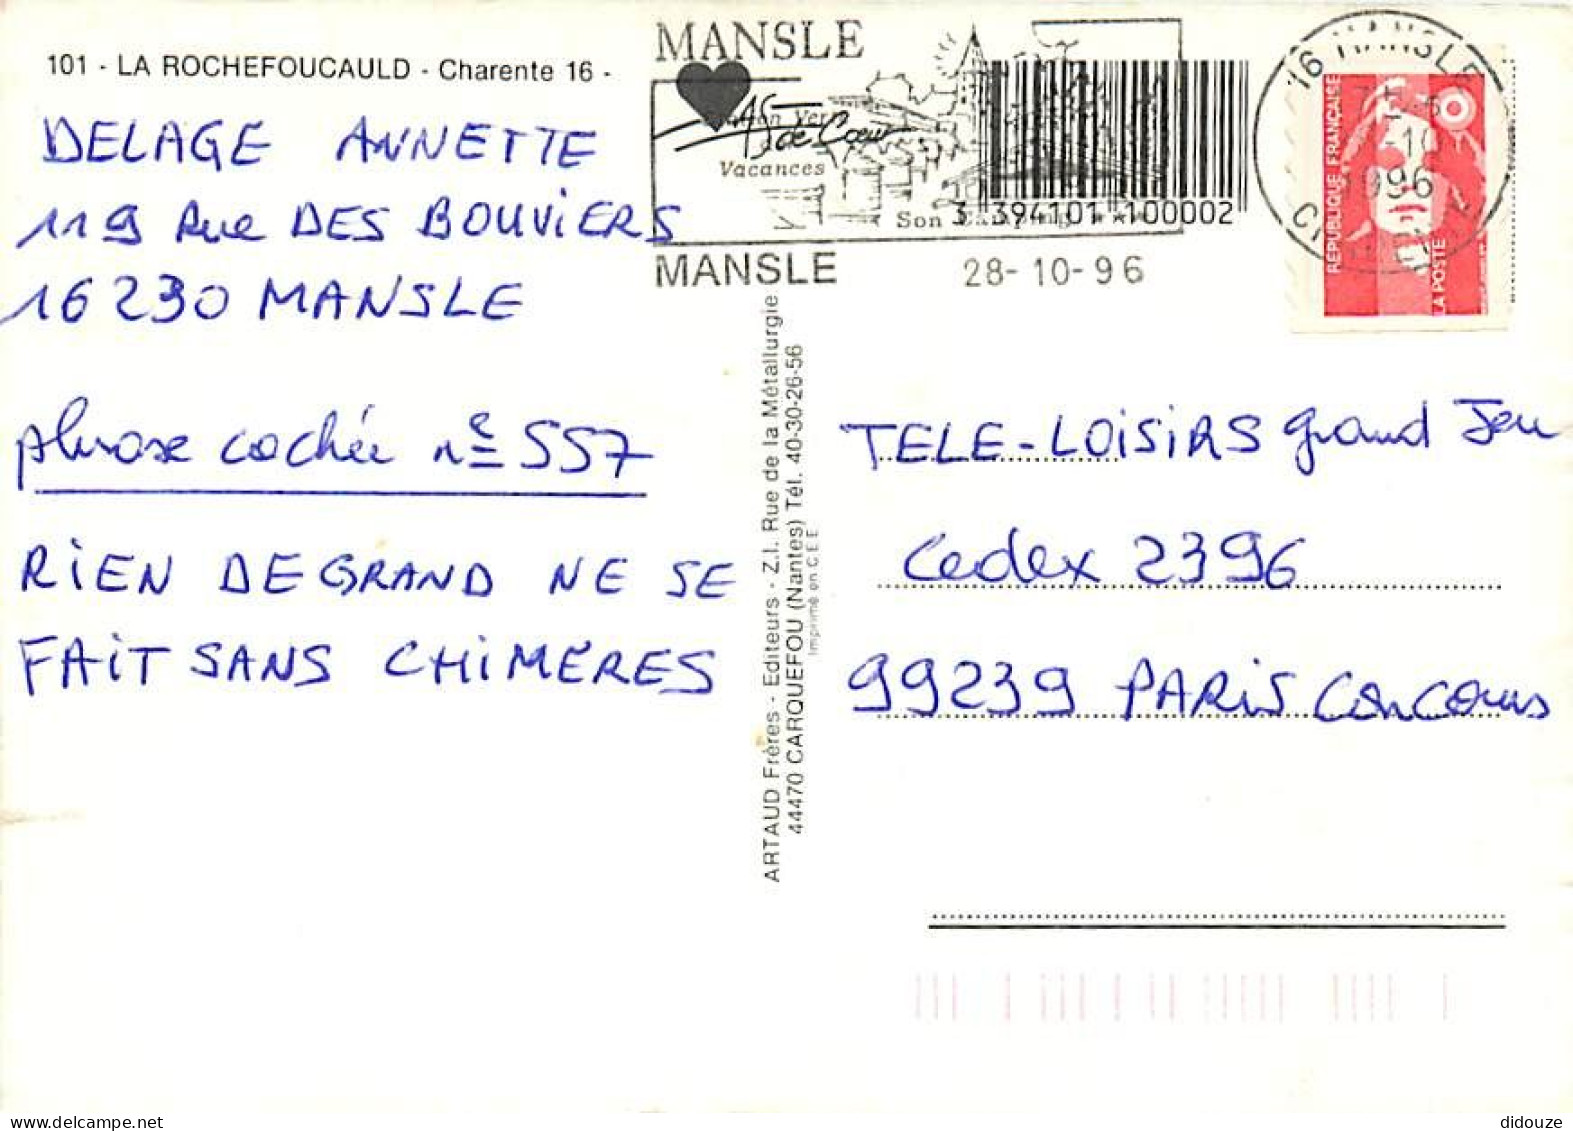 101 - LA ROCHEFOUCAULD - Charente 16 -
DELAGE ANNETTE
119 Rue DES BOUVIERS
16230 MANSLE
phrase cachée n° 557
RIEN DE GRAND NE SE
FAIT SANS CHIMERES
MANSLE
As de Cœur
Vacances
Son Camping ***
MANSLE
28-10-96
3 394101 100002
16 MANSLE
1996
RÉPUBLIQUE FRANÇAISE
LA POSTE
ARTAUD Frères - Editeurs - Z.I. Rue de la Métallurgie
44470 CARQUEFOU (Nantes) Tél. 40-30-26-56
Imprimé en CEE
TELE-LOISIRS grand Jeu
Cedex 2396
99239 PARIS Concours
didouze